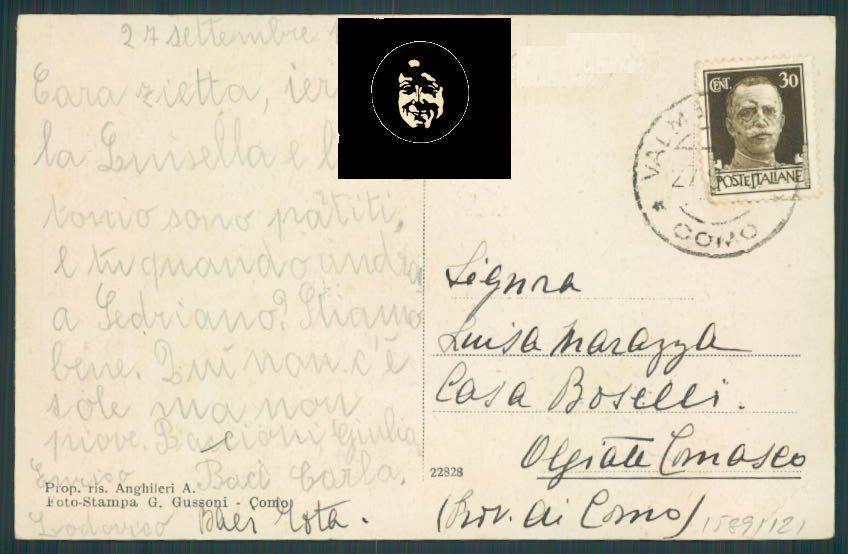 27 settembre
Cara zietta, ieri
la Luisella e l
tonio sono partiti,
e tu quando andrai
a Sedriano? Stiamo
bene. Qui non c'è
sole ma non
piove. Bacioni Giulia
Enrico Baci Carla.
Prop. ris. Anghileri A.
Foto-Stampa G. Gussoni - Como
Lodovico Baci
CENT. 30
POSTE ITALIANE
VALM
27
COMO
Signora
Luisa Marazza
Casa Boselli.
Olgiate Comasco
(Prov. di Como)
22828